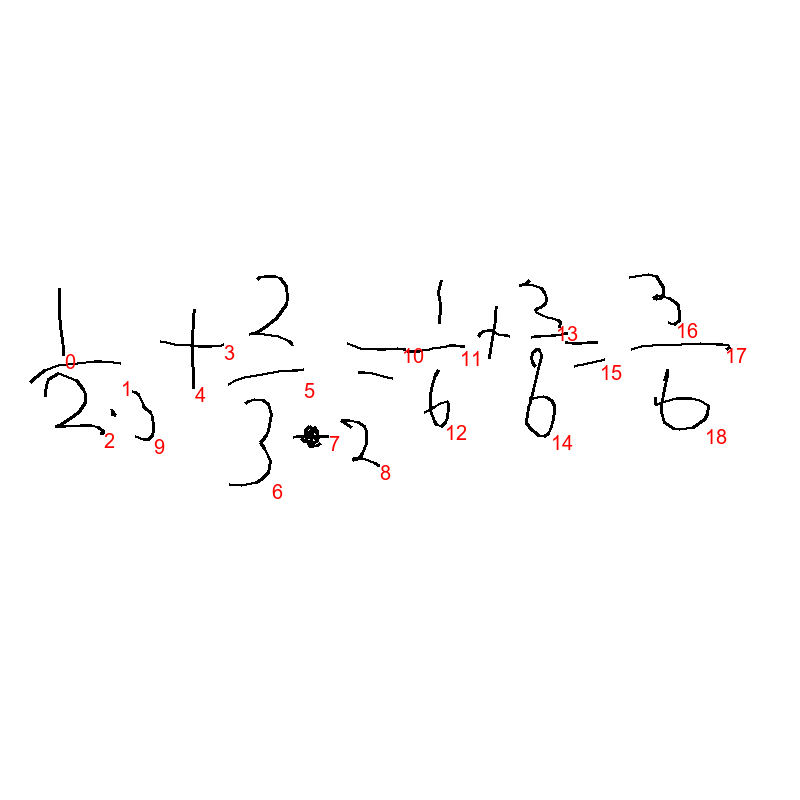 1/(2·3) + 2/(3·2) = 1/6 + 3/6 = 3/6
0 1 2 9 3 4 5 6 7 8 10 11 12 13 14 15 16 17 18